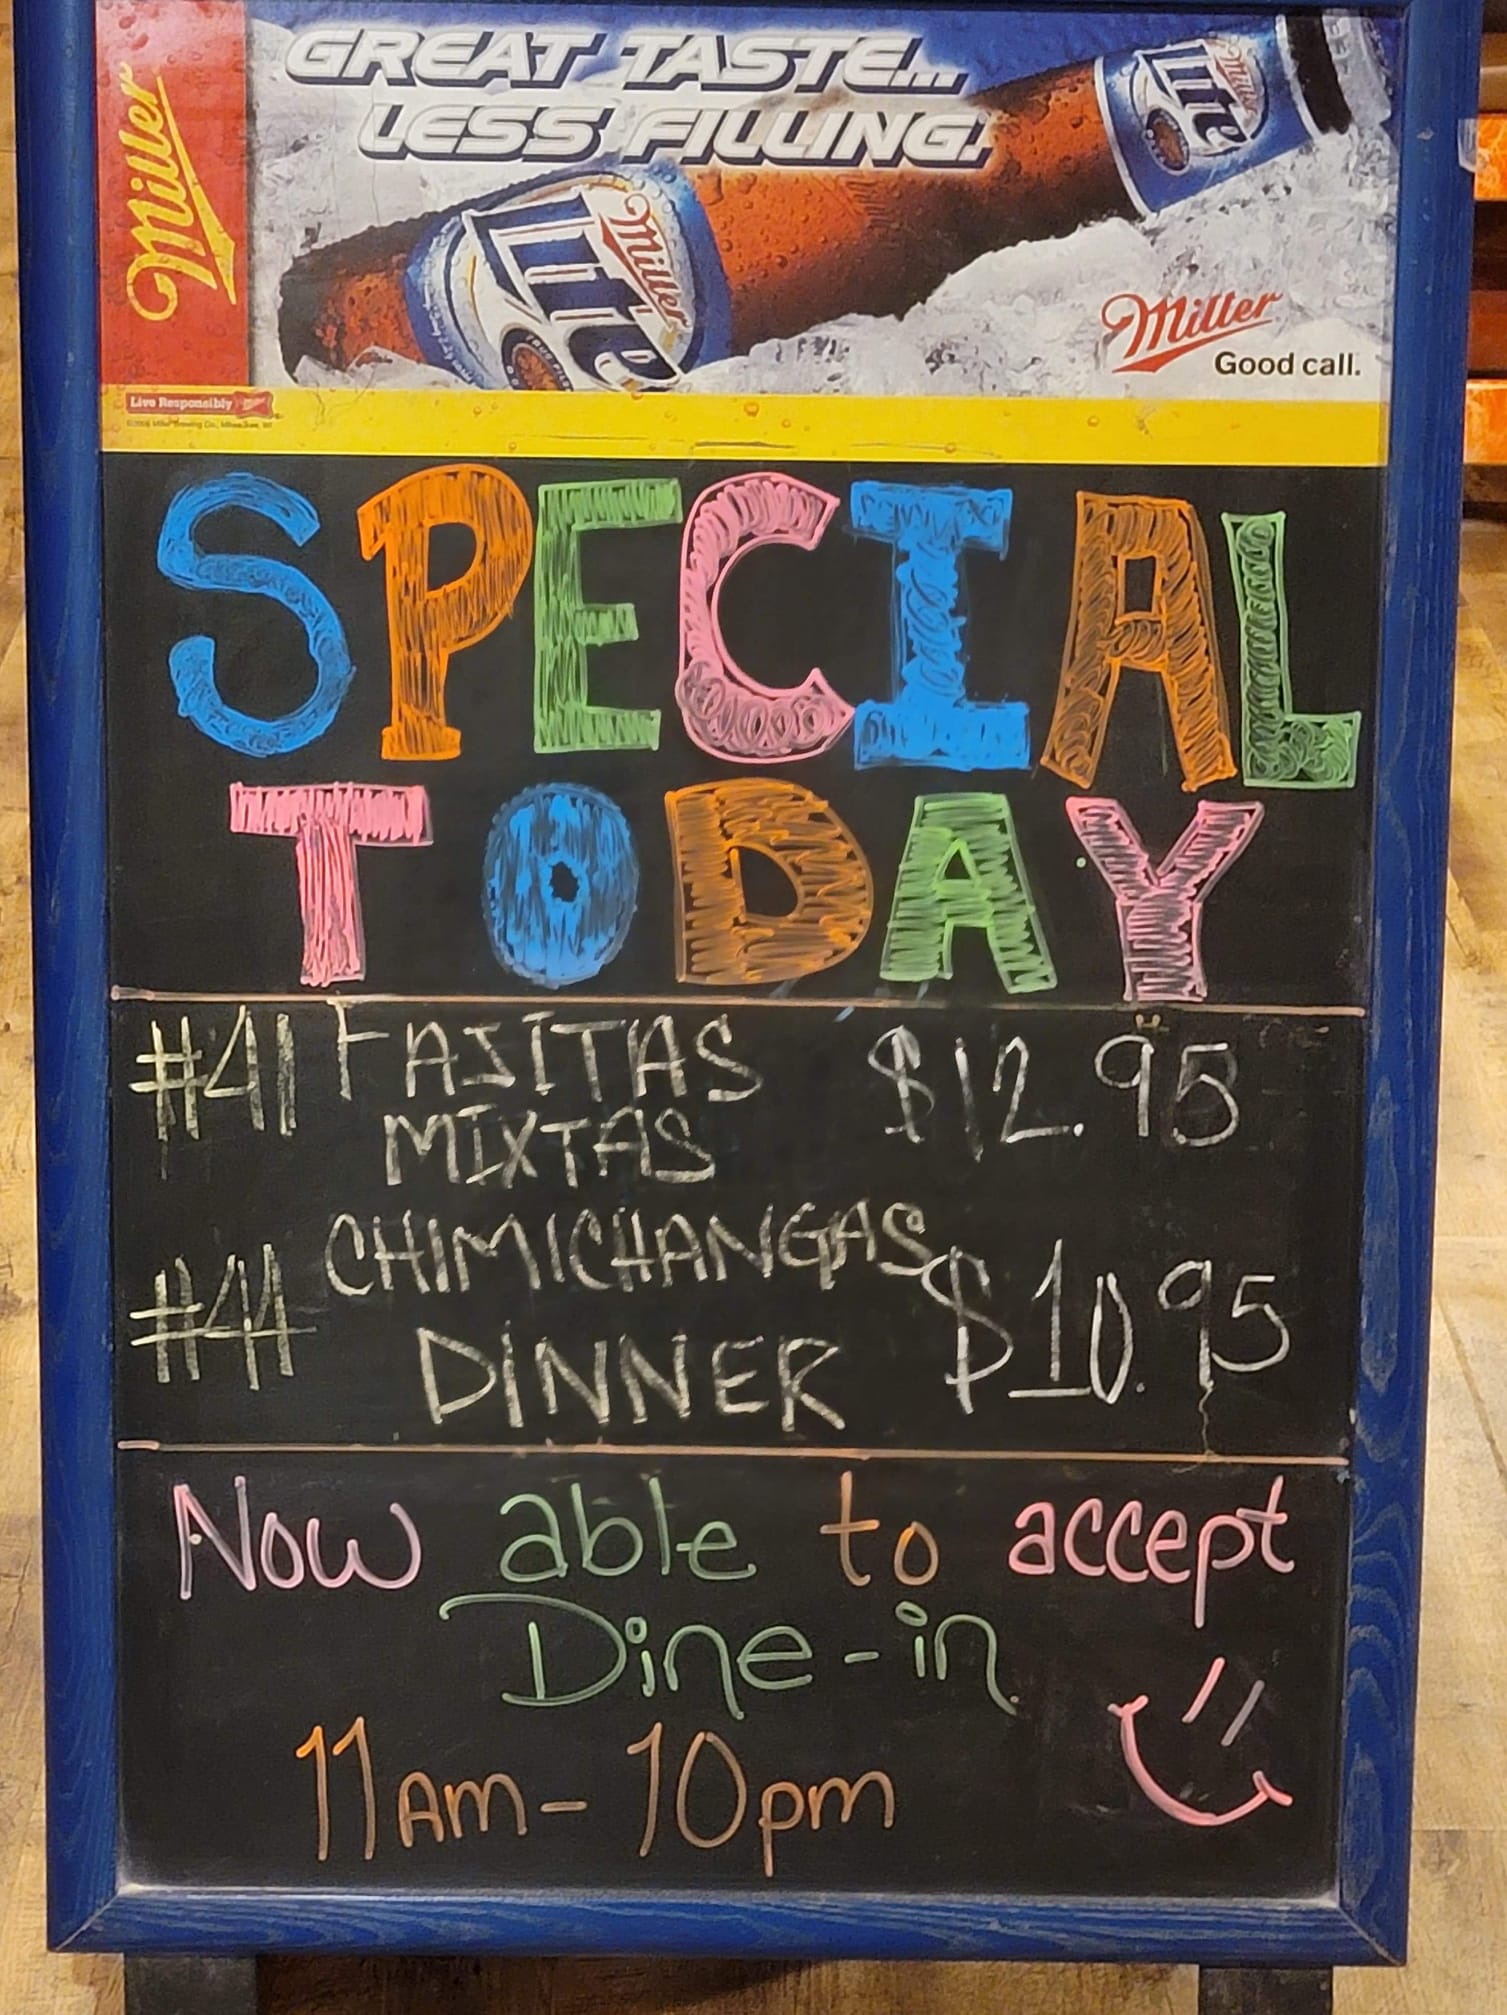 Miller
GREAT TASTE...
LESS FILLING.
Lite
Miller
Lite
Miller
Miller
Good call.
Live Responsibly
SPECIAL
TODAY
#41 FAJITAS $12.95
MIXTAS
#44 CHIMICHANGAS $10.95
DINNER
Now able to accept
Dine-in
11Am-10pm